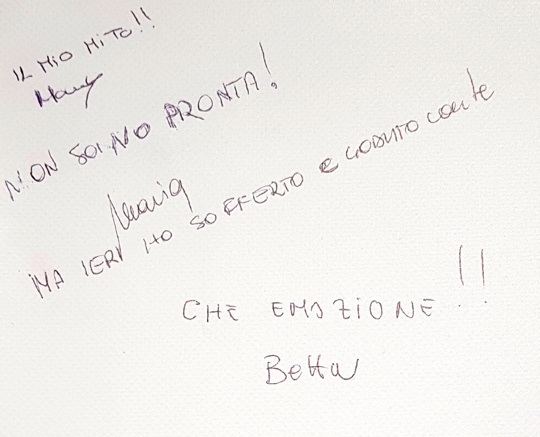 IL MIO MITO!!
Mary
NON SONO PRONTA!
Maria
MA IERI HO SOFFERTO E GODUTO con te
CHE EMOZIONE!!
Betta